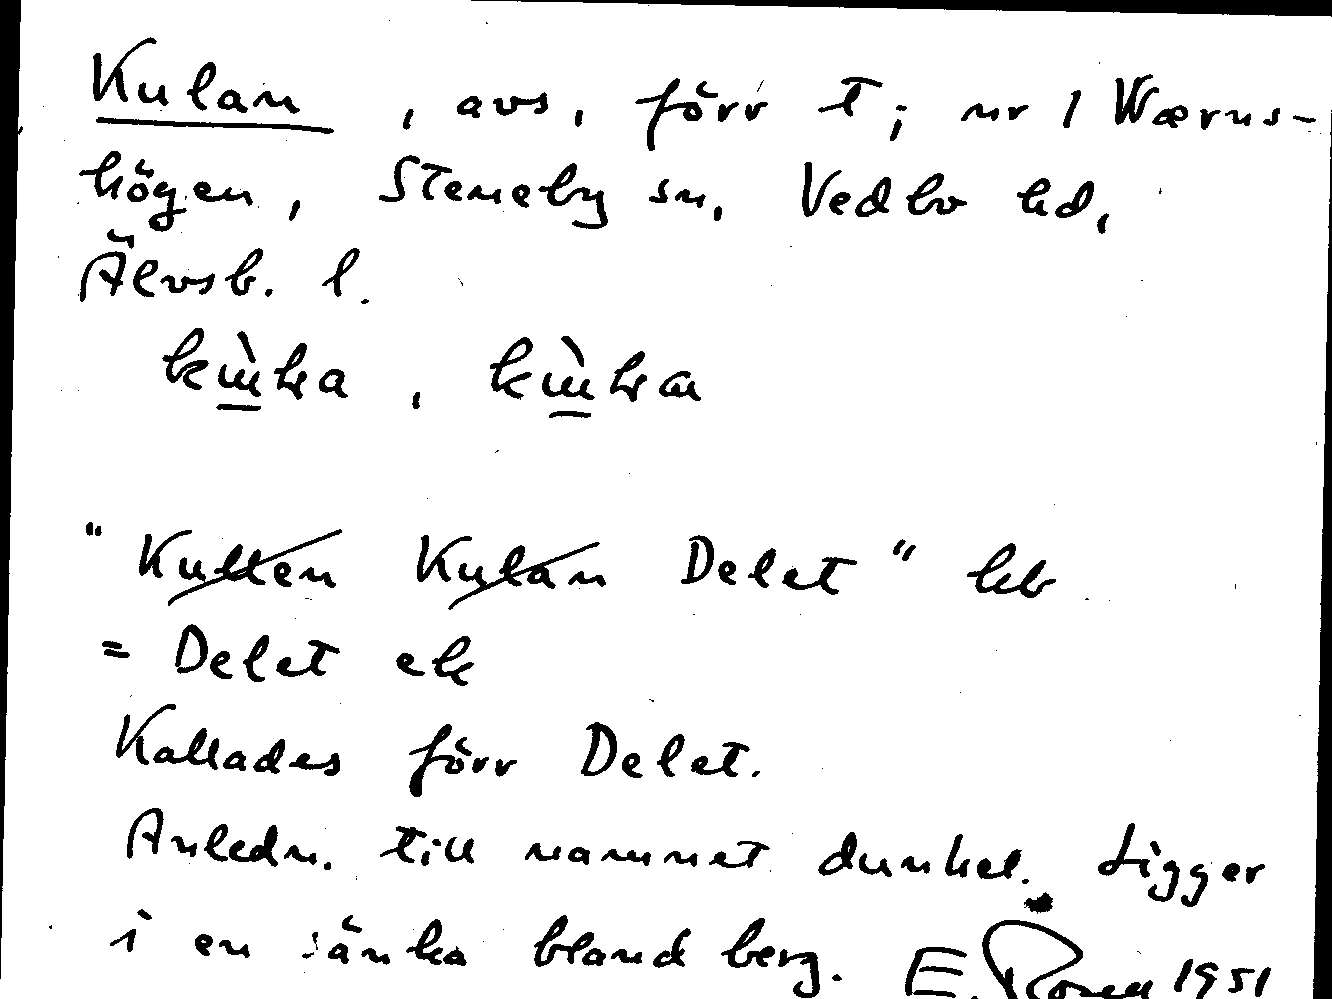 Kulan, avs, förr t; nr 1 Wærns-
högen, Steneby sn, Vedbo hd,
Älvsb. l.
"Kullen Kulan Delet" kb
= Delet ek
Kallades förr Delet.
Anledn. till namnet dunkel. Ligger
i en sänka bland berg. E. Rosen 1951